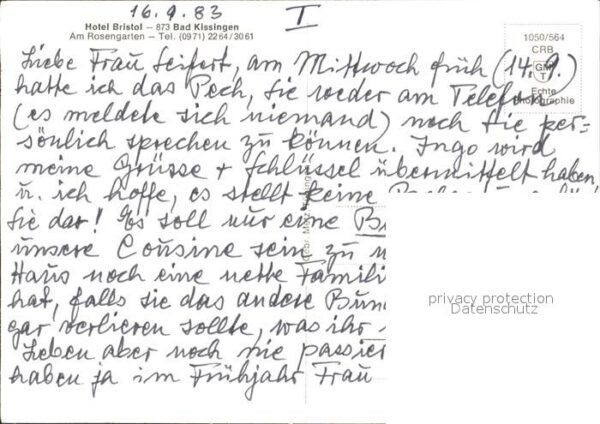 16.9.83
I
Hotel Bristol – 873 Bad Kissingen
Am Rosengarten – Tel. (0971) 2264/3061
1050/564
CRB
GM
T
Echte
Photographie
Liebe Frau Seifert, am Mittwoch früh (14.9.)
hatte ich das Pech, Sie weder am Telefon
(es meldete sich niemand) noch Sie per-
sönlich sprechen zu können. Ingo wird
meine Grüsse + Schlüssel übermittelt haben,
u. ich hoffe, es stellt keine
Sie dar! Es soll nur eine
unsere Cousine sein, zu
Haus noch eine nette Famili
hat, falls sie das andere Bun
gar verlieren sollte, was ihr
Leben aber noch nie passier
haben ja im Frühjahr Frau
privacy protection
Datenschutz